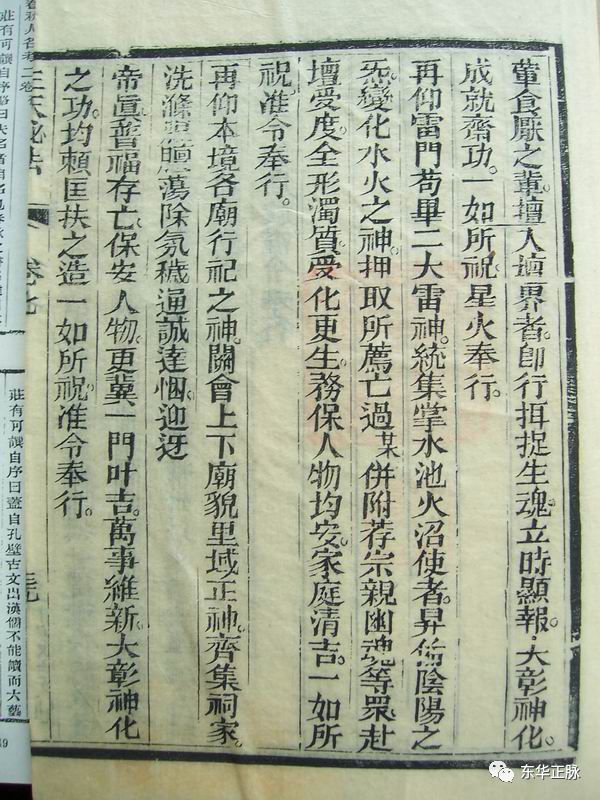 葷食厭之輩壇入通界者。卽行拑捉生魂。立時顯報。大彰神化。
成就齋功。一如所祝。星火奉行。
再仰雷門苟畢二大雷神。統集掌水池火沼使者。昇降陰陽之
炁變化水火之神。押取所薦亡過某併附荐宗親幽魂等眾赴
壇受度。全形濁質。受化更生。務保人物均安。家庭清吉。一如所
祝。准令奉行。
再仰本境各廟行祀之神。關會上下廟貌里域正神。齊集祠家。
洗滌 壇 蕩除氛穢。通誠達悃。迎迓
帝眞。普福存亡。保安人物。更冀一門叶吉。萬事維新。大彰神化
之功。均賴匡扶之造。一如所祝。准令奉行。
卷七
莊有可譔自序曰蓋自孔壁古文出漢儒不能讀而大藝
19
东华正脉